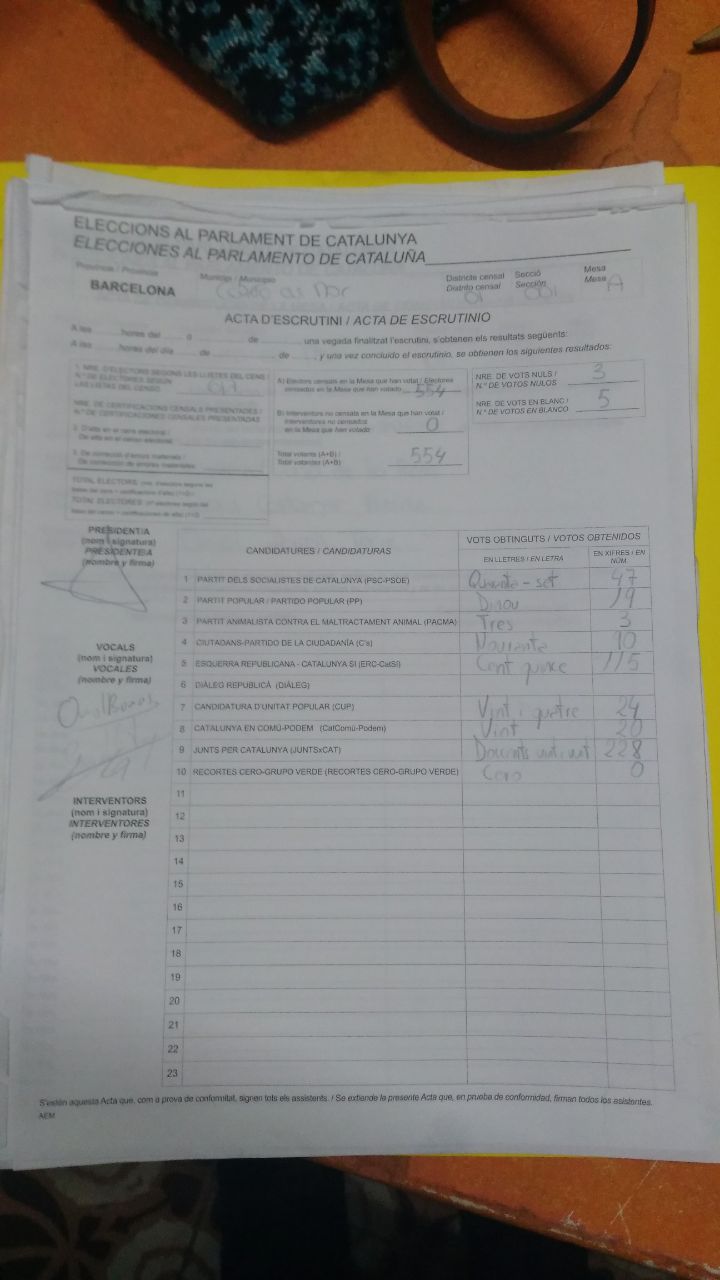 ELECCIONS AL PARLAMENT DE CATALUNYA
ELECCIONES AL PARLAMENTO DE CATALUÑA
Província / Provincia
Municipi / Municipio
Districte censal Secció Mesa
Distrito censal Sección Mesa
BARCELONA
01 001 A
ACTA D'ESCRUTINI / ACTA DE ESCRUTINIO
A les hores del a de una vegada finalitzat l'escrutini, s'obtenen els resultats següents:
A las horas del día de de , y una vez concluido el escrutinio, se obtienen los siguientes resultados:
1. NRE. D'ELECTORS SEGONS LES LLISTES DEL CENS /
N.º DE ELECTORES SEGÚN
LAS LISTAS DEL CENSO
NRE. DE CERTIFICACIONS CENSALS PRESENTADES /
N.º DE CERTIFICACIONES CENSALES PRESENTADAS
A) Electors censats en la Mesa que han votat / Electores
censados en la Mesa que han votado 554
B) Interventors no censats en la Mesa que han votat /
Interventores no censados
en la Mesa que han votado 0
Total votants (A+B) /
Total votantes (A+B) 554
NRE. DE VOTS NULS / 3
N.º DE VOTOS NULOS
NRE. DE VOTS EN BLANC / 5
N.º DE VOTOS EN BLANCO
PRESIDENT/A
(nom i signatura)
PRESIDENTE/A
(nombre y firma)
VOCALS
(nom i signatura)
VOCALES
(nombre y firma)
INTERVENTORS
(nom i signatura)
INTERVENTORES
(nombre y firma)
CANDIDATURES / CANDIDATURAS
VOTS OBTINGUTS / VOTOS OBTENIDOS
EN LLETRES / EN LETRA
EN XIFRES / EN NÚM.
1 PARTIT DELS SOCIALISTES DE CATALUNYA (PSC-PSOE) Quaranta-set 47
2 PARTIT POPULAR / PARTIDO POPULAR (PP) Dinou 19
3 PARTIT ANIMALISTA CONTRA EL MALTRACTAMENT ANIMAL (PACMA) Tres 3
4 CIUTADANS-PARTIDO DE LA CIUDADANÍA (C's) Nouranta 90
5 ESQUERRA REPUBLICANA - CATALUNYA SÍ (ERC-CatSí) Cent quinze 115
6 DIÀLEG REPUBLICÀ (DIÀLEG)
7 CANDIDATURA D'UNITAT POPULAR (CUP) Vint i quatre 24
8 CATALUNYA EN COMÚ-PODEM (CatComú-Podem) Vint 20
9 JUNTS PER CATALUNYA (JUNTSxCAT) Doscents vint-i-vuit 228
10 RECORTES CERO-GRUPO VERDE (RECORTES CERO-GRUPO VERDE) Cero 0
11
12
13
14
15
16
17
18
19
20
21
22
23
S'estén aquesta Acta que, com a prova de conformitat, signen tots els assistents. / Se extiende la presente Acta que, en prueba de conformidad, firman todos los asistentes.
AEM